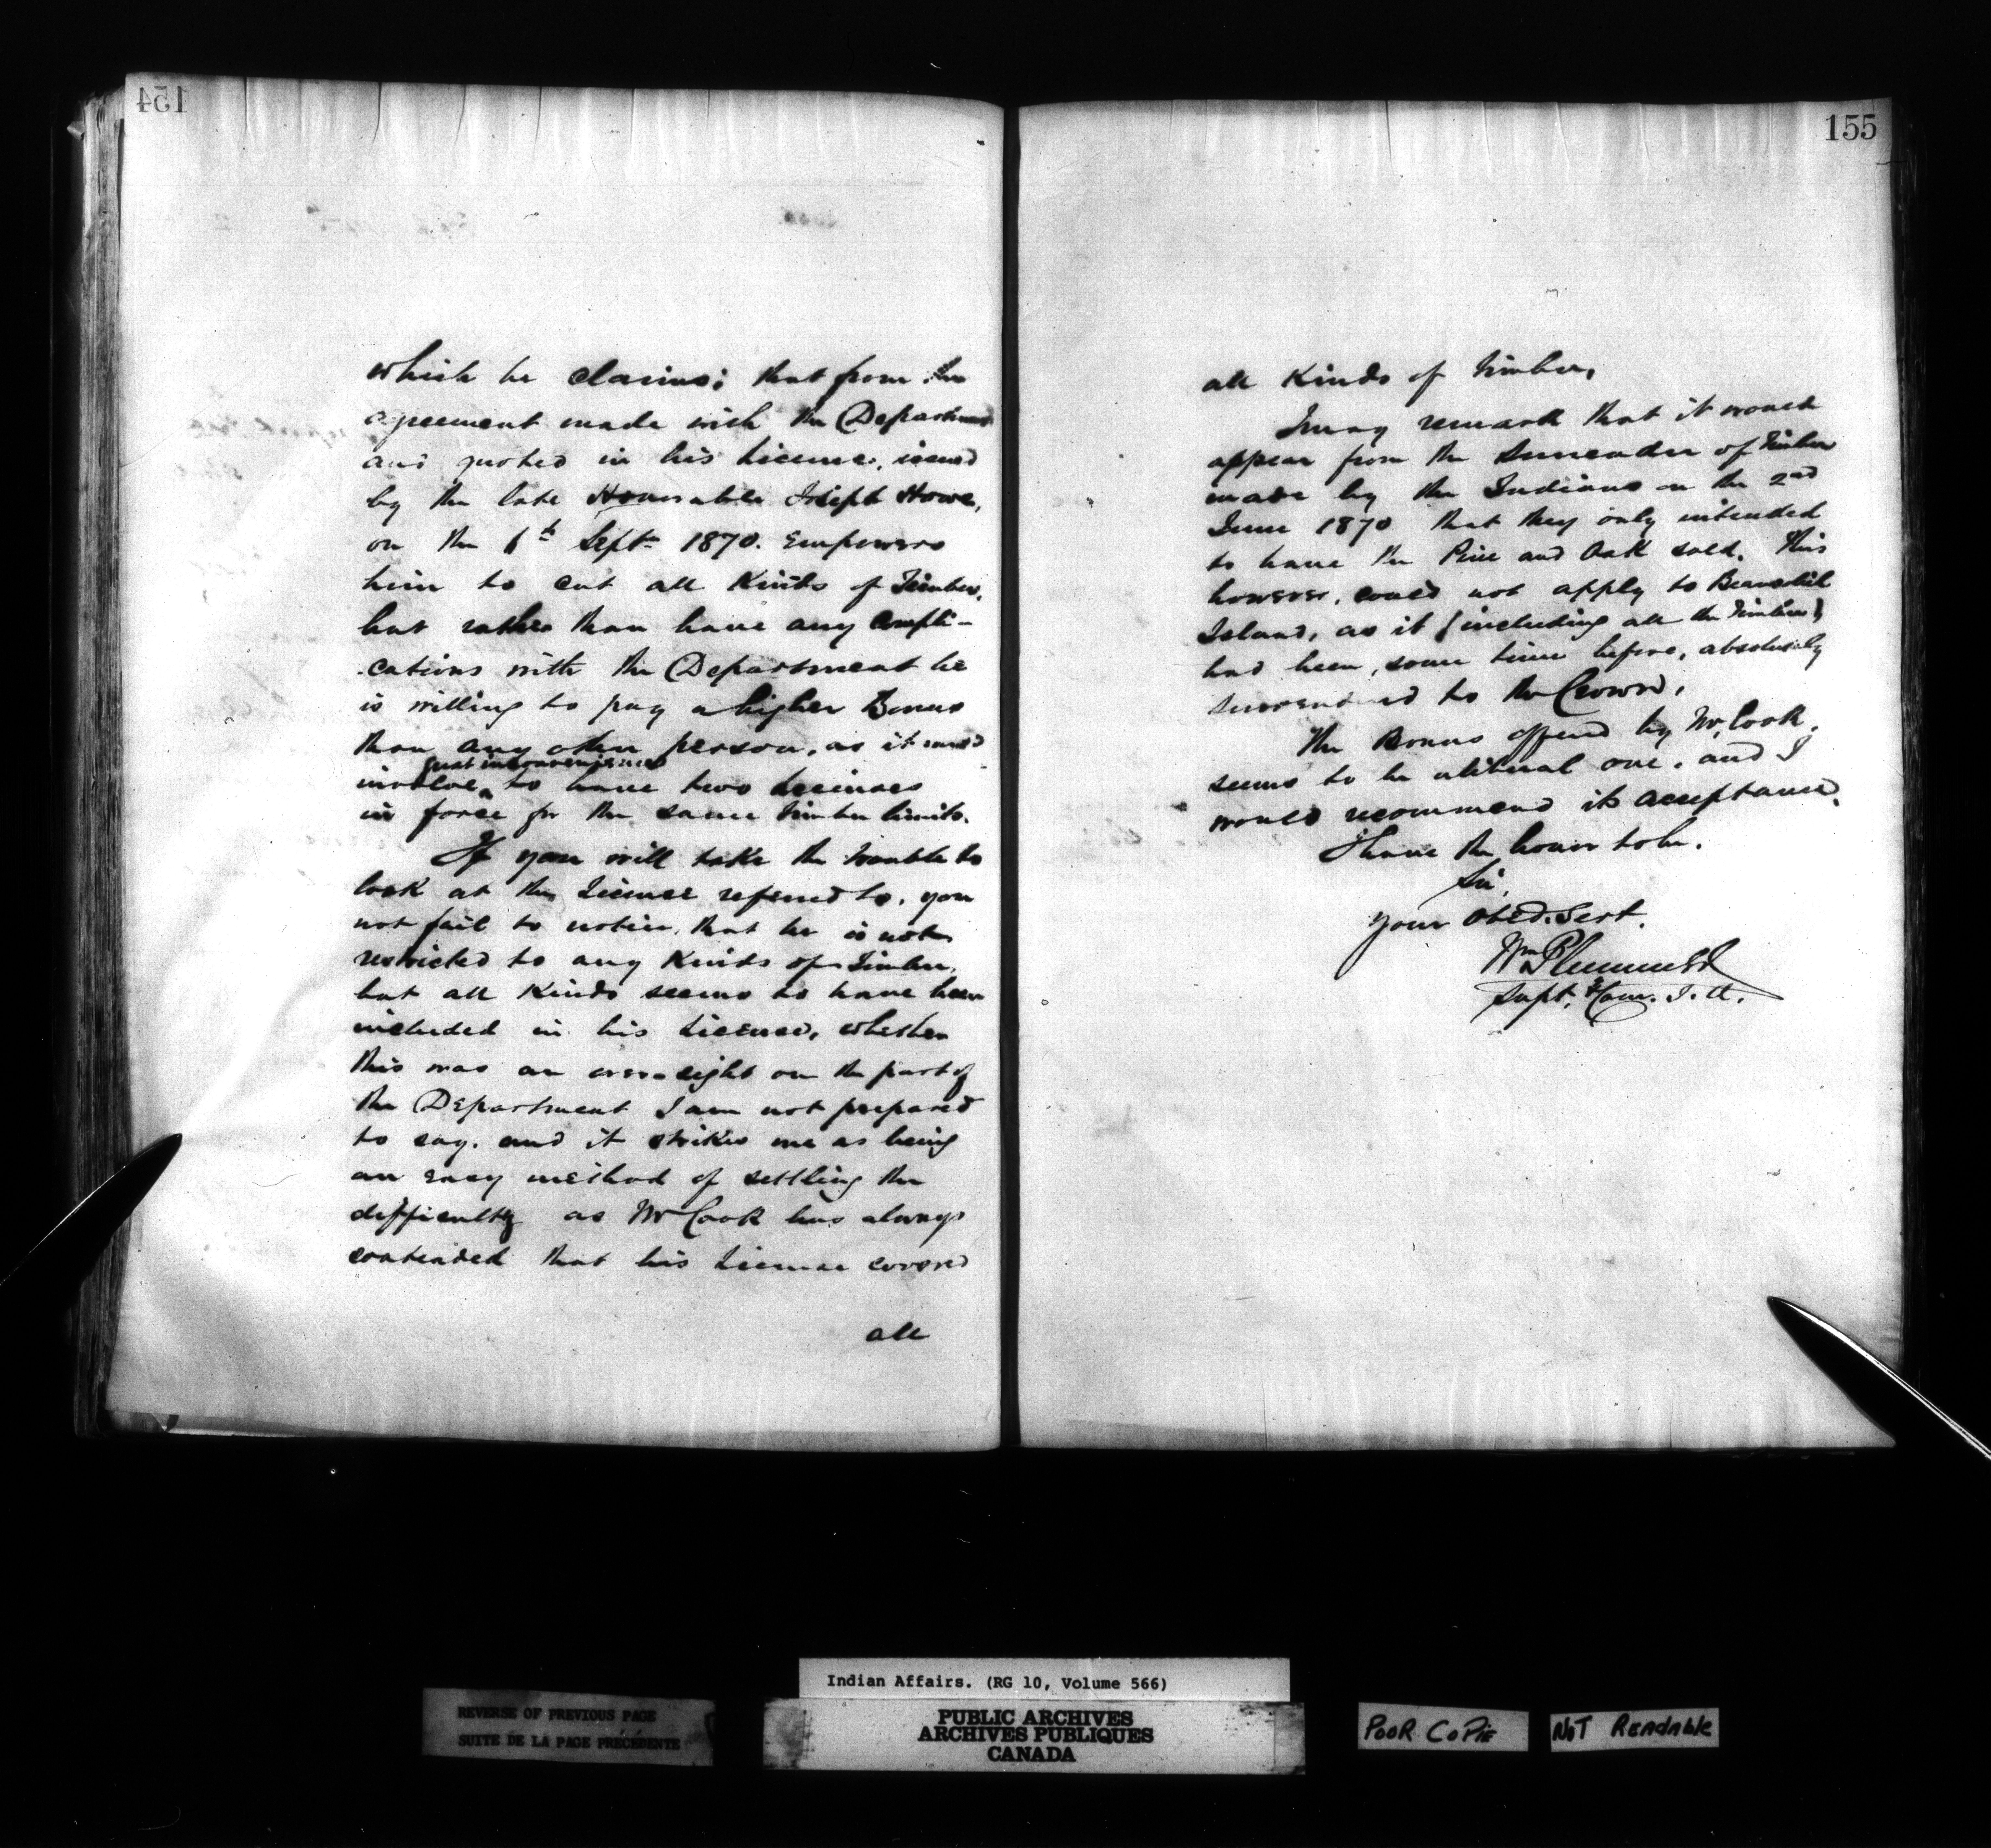 154
which he claims; that from the
agreement made with the Department
and quoted in his license, issued
by the late Honourable Joseph Howe,
on the 6th Septr 1870. empowers
him to cut all Kinds of Timber,
but rather than have any Compli-
cations with the Department he
is willing to pay a higher Bonus
than any other person, as it would
great inconvenience
involve to have two licenses
in force for the same timber limits.
If you will take the trouble to
look at the License referred to, you
not fail to notice, that he is not
restricted to any Kinds of Timber,
but all Kinds seems to have been
included in his License, whether
this was an oversight on the part of
the Department I am not prepared
to say. and it strikes me as being
an easy method of settling the
difficulty as Mr Cook has always
contended that his License covered
all
155
all Kinds of Timber,
I may remark that it would
appear from the Surrender of Timber
made by the Indians on the 2nd
June 1870 that they only intended
to have the Pine and Oak sold. This
however, could not apply to Beausoleil
Island, as it (including all the Timber)
had been, some time before, absolutely
surrendered to the Crown,
The Bonus offered by Mr Cook,
seems to be a liberal one, and I
would recommend its acceptance.
I have the honor to be,
Sir,
Your Obed. Sert.
Wm Plummer
Supt. & Com. I. A.
Indian Affairs. (RG 10, Volume 566)
REVERSE OF PREVIOUS PAGE
SUITE DE LA PAGE PRÉCÉDENTE
PUBLIC ARCHIVES
ARCHIVES PUBLIQUES
CANADA
POOR COPIE
NOT READABLE